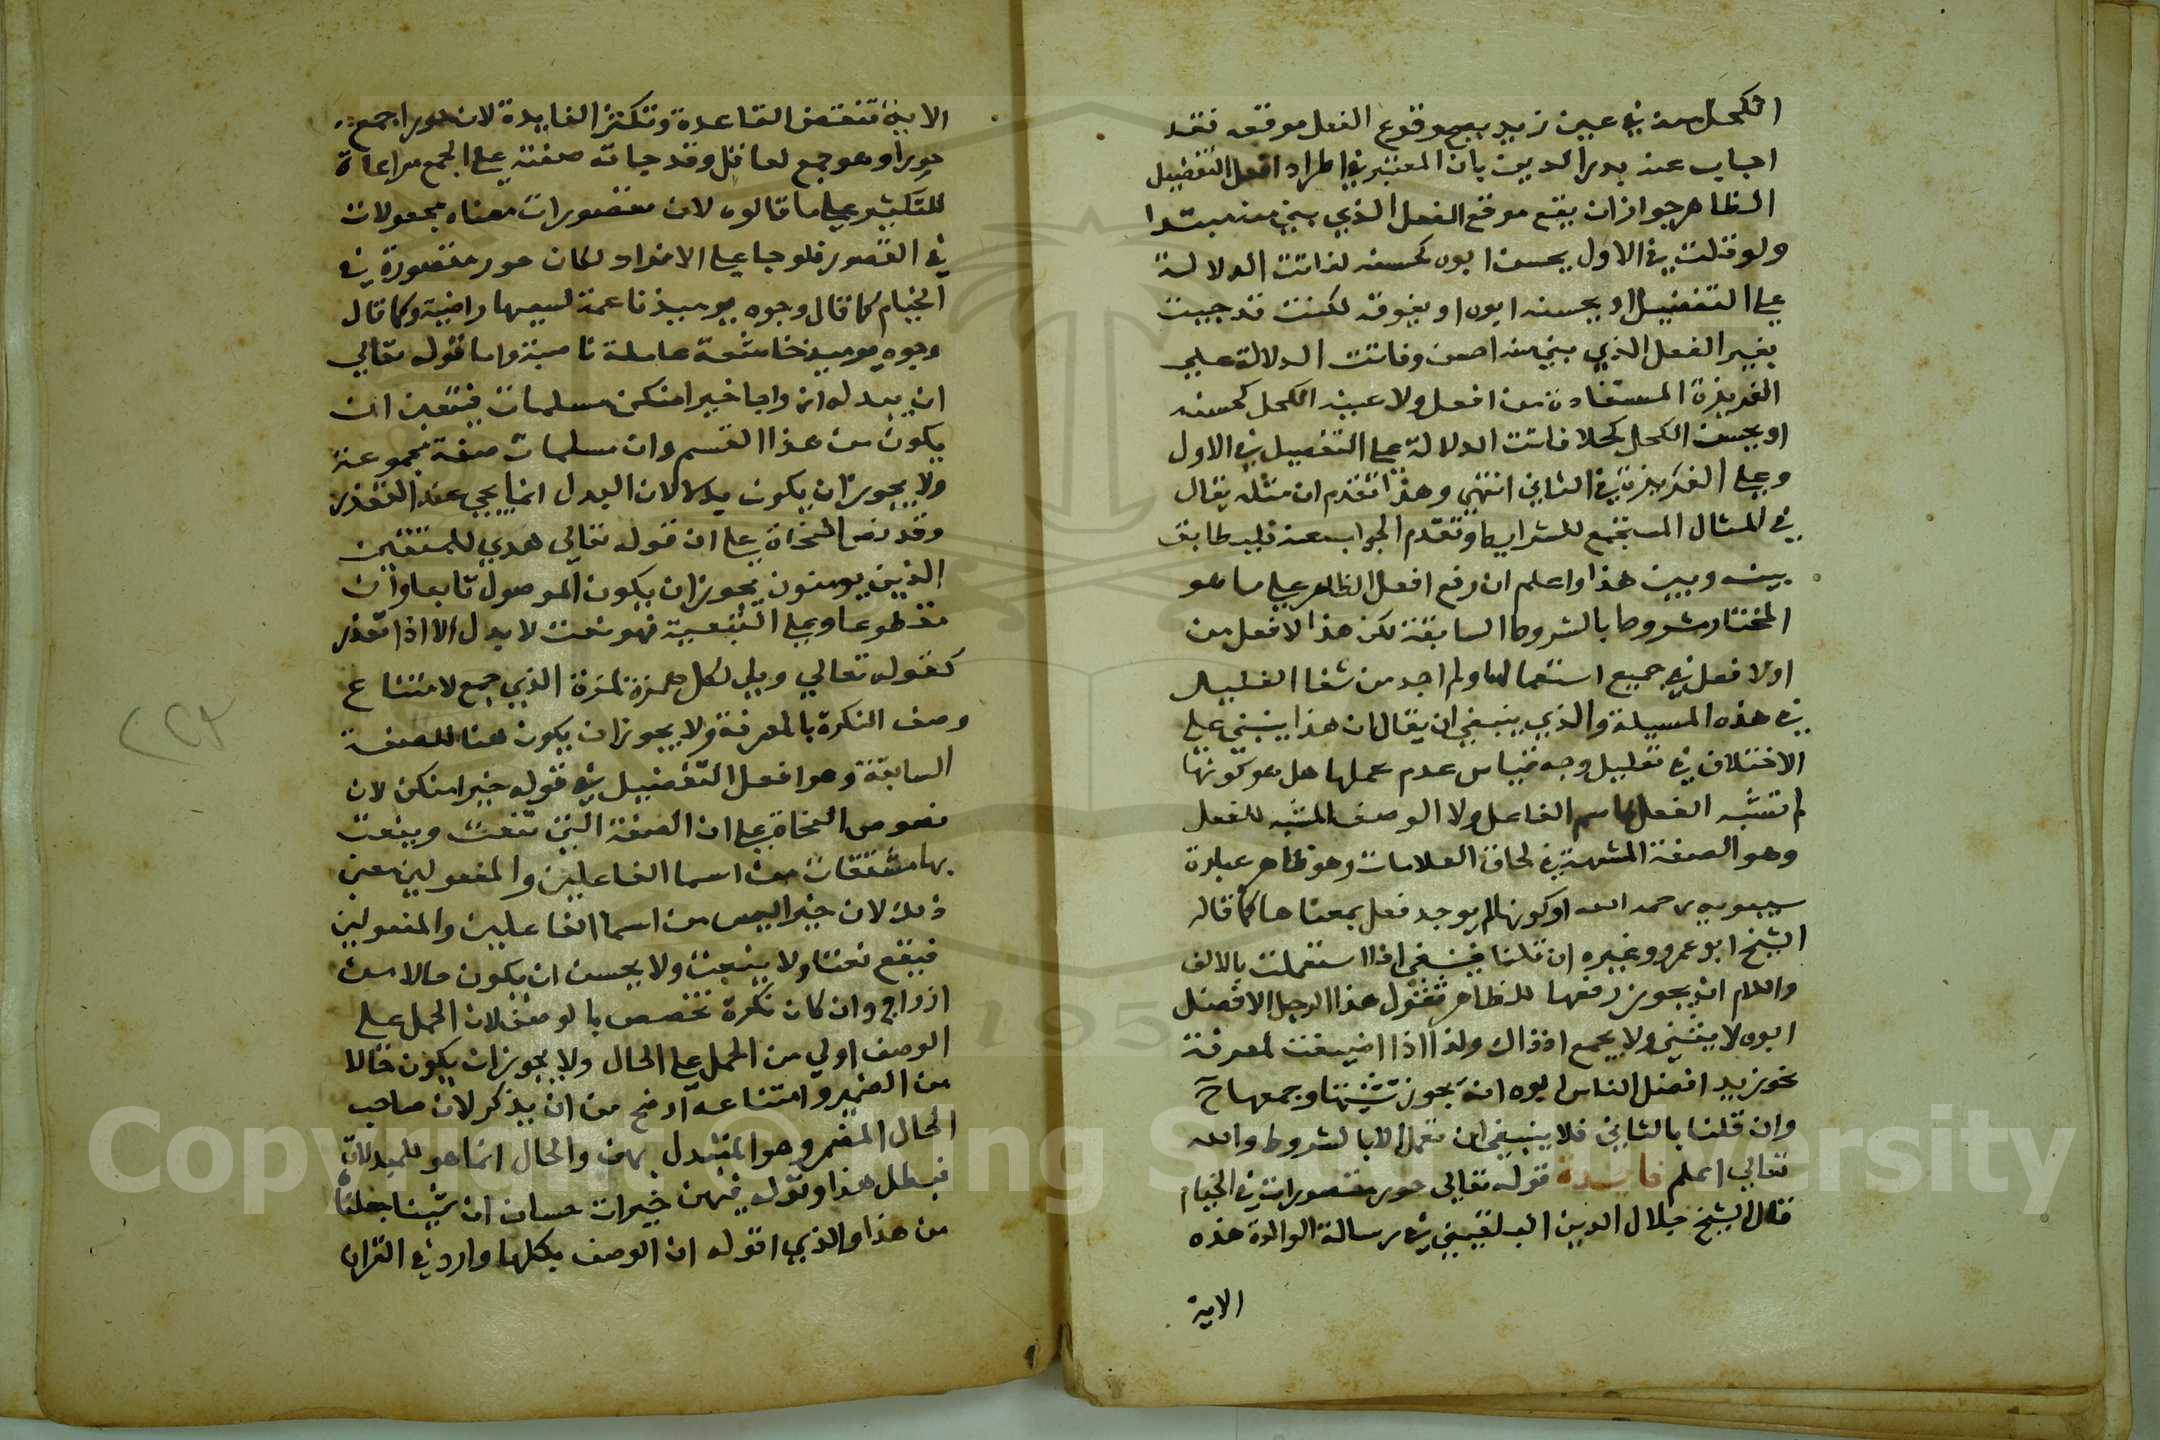 الكحل منه في عين زيد يصح وقوع الفعل موقعه فقد
اجاب عنه بدر الدين بان المعتبر في اطراد افعل التفضيل
الظاهر جواز ان يقع موقع الفعل الذي بني منه مبتدا
ولو قلت في الاول يحسن ابوه كحسنه لفاتت الدلالة
علي التفضيل او يحسنه ابوه او يفوقه لكنت قد جيت
بغير الفعل الذي بني منه احسن وفاتت الدلالة علي
الغريزة المستفادة من افعل ولا عينه الكحل كحسنه
او يحسن الكحل كحلا فاتت الدلالة علي التفضيل في الاول
وعلي الغريزة في الثاني انتهي وهذا تقدم ان مثله يقال
في المثال المستجمع للشرايط وتقدم الجواب عنه فليطابق
بينه وبين هذا واعلم ان رفع افعل الظاهر علي ما هو
المختار مشروط بالشروط السابقة لكن هذا لافعل من
او لا فعل في جميع استعمالها ولم اجد من شفا الغليل
في هذه المسيلة والذي ينبغي ان يقال ان هذا ينبني علي
الاختلاف في تعليل وجه قياس عدم عملها هل هو كونها
لم تشبه الفعل كاسم الفاعل ولا الوصف المشبه للفعل
وهو الصفة المشبهة في لحاق العلامات وهو ظاهر عبارة
سيبويه رحمه الله او كونها لم يوجد فعل بمعناها كما قاله
الشيخ ابو عمرو وغيره ان قلنا فينبغي اذا استعملت بالالف
واللام ان يجوز رفعها للظاهر فتقول هذا الرجل الافضل
ابوه لا يثني ولا يجمع اذ ذاك ولذا اذا اضيفت لمعرفة
نحو زيد افضل الناس ابوه انه يجوز تثنيتها وجمعها ح
وان قلنا بالثاني فلا ينبغي ان تعمل الا بالشروط والله
تعالي اعلم فايدة قوله تعالي حور مقصورات في الخيام
قال الشيخ جلال الدين البلقيني في رسالة الوالدة هذه
الاية
الاية تنقض القاعدة وتكثر الفايدة لان حورا جمع
حورا وهو جمع لعاقل وقد جات صفته علي الجمع مراعاة
للتكثير علي ما قالوه لان مقصورات معناه مجعولات
في القصور فلو جا علي الافراد لكان حور مقصورة في
الخيام كما قال وجوه يوميذ ناعمة لسعيها راضية وكما قال
وجوه يوميذ خاشعة عاملة ناصبة واما قوله تعالي
ان يبدله ازواجا خيرا منكن مسلمات فيتعين ان
يكون من هذا القسم وان مسلمات صفة مجموعة
ولا يجوز ان يكون بدلا لان البدل انما يجي عند التعذر
وقد نص النحاة علي ان قوله تعالي هدي للمتقين
الذين يومنون يجوز ان يكون الموصول تابعا وان
مقطوعا وعلي التبعية فهو نعت لا بدل الا اذا تعذر
كقوله تعالي ويل لكل همزة لمزة الذي جمع لامتناع
وصف النكرة بالمعرفة ولا يجوز ان يكون هنا للصفة
السابقة وهو افعل التفضيل في قوله خيرا منكن لان
نصوص النحاة علي ان الصفة التي تنعت وينعت
بها مشتقات من اسما الفاعلين والمفعولين عن
ذلك لان خيرا ليس من اسما الفاعلين والمفعولين
فيقع نعتا ولا ينعت ولا يحسن ان يكون حالا من
ازواج وان كان نكرة تخصص بالوصف لان الحمل علي
الوصف اولي من الحمل علي الحال ولا يجوز ان يكون حالا
من الضمير وامتناعه اوضح من ان يذكر لان صاحب
الحال المضمر وهو المتبدل بهن والحال انما هو للمبدلات
فبطل هذا وقوله فيهن خيرات حسان ان شينا جعلنا
من هذا والذي اقوله ان الوصف بكلها وارد في القران
٢٢٣
Copyright © King Saud University
195